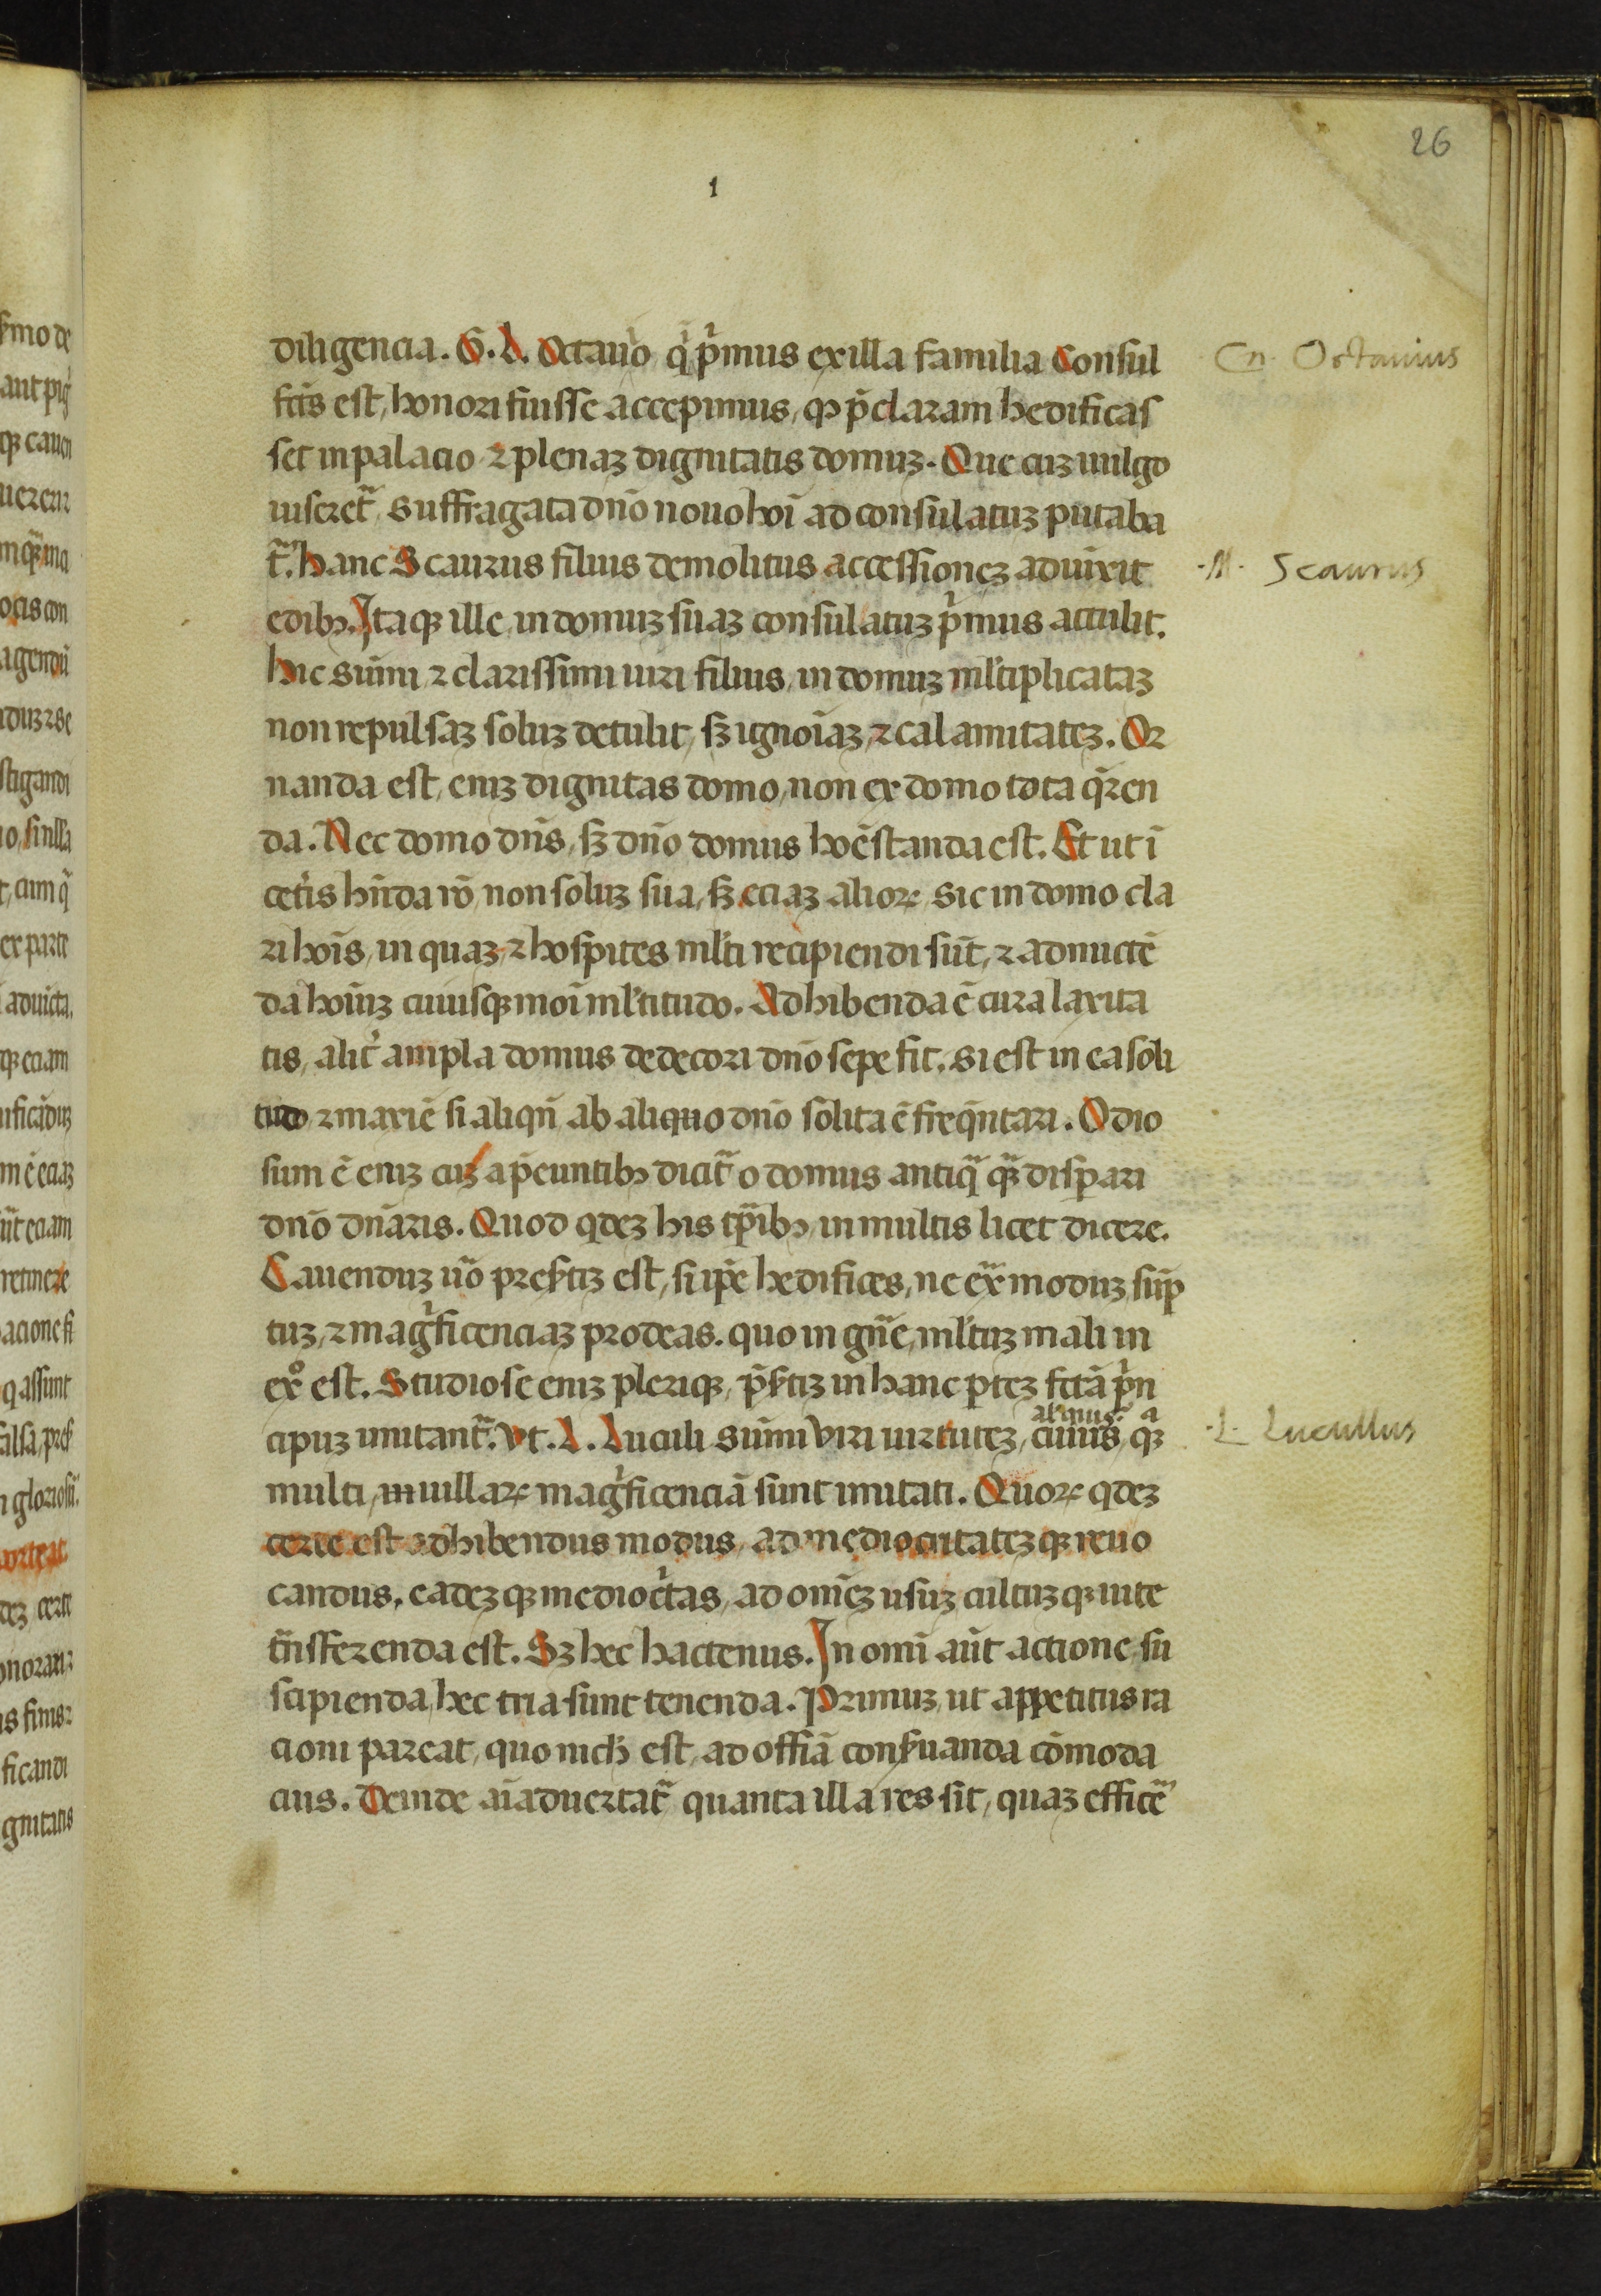 26
1
diligencia. G. L. Octauio q̇ pͥmus ex illa familia Consul
fcūs est, honori fuisse accepimus, qꝫ p̄claram hedificas
set in palacio ⁊ plenaꝫ dignitatis domuꝫ. Que cuꝫ uulgo
uiseret̄, suffragata dn̄o nouo hoī ad consulatuꝫ putaba
t̄. hanc Scaurus filius demolitus accessioneꝫ aduixit
edibꝫ. Itaqꝫ ille in domuꝫ suaꝫ consulatuꝫ pͥmus attulit.
hic sum̄i ⁊ clarissimi uiri filius, in domuꝫ ml̄tiplicataꝫ
non repulsaꝫ soluꝫ detulit, sꝫ ignoīaꝫ, ⁊ calamitateꝫ. Or
nanda est, eniꝫ dignitas domo, non ex domo tota q̄ren
da. Nec domo dn̄s, sꝫ dn̄o domus hoēstanda est. Et ut ī
cet̄is hn̄da rō, non soluꝫ sua, sꝫ eciaꝫ alioꝝ, sic in domo cla
ri hoīs, in quaꝫ ⁊ hospites ml̄ti recipiendi sūt, ⁊ admictē
da hoīuꝫ cuiusqꝫ moī ml̄titudo. Adhibenda ē cura laxita
tis, alit̄ ampla domus dedecori dn̄o sepe fit, si est in ea soli
tudo ⁊ maxiē si aliqn̄ ab aliquo dn̄o solita ē freq̄ntari. Odio
sum ē eniꝫ cuꝫ a p̄euntibꝫ dicit̄ o domus antiq̄ qꝫ̄ dispari
dn̄o dn̄aris. Quod qdeꝫ his tp̄ibꝫ in multis licet dicere.
Cauenduꝫ ū̄o presertiꝫ est, si ip̄e hedifices, ne ex̄ moduꝫ sūp
tuꝫ, ⁊ magͥficenciaꝫ prodeas. quo in gn̄e, ml̄tuꝫ mali in
exͦ est. Studiose eniꝫ pleriqꝫ, p̄sertiꝫ in hanc pteꝫ fctā pͥn
cipuꝫ imitant̄. vt. L. Luculi sum̄i viri uirtuteꝫ, cuiusqꝫ
multi, in uillaꝝ magͥficenciā sunt imitati. Quoꝝ qdeꝫ
certe est adhibendus modus, ad mediocritateꝫqꝫ reuo
candus, eadeꝫqꝫ mediocͥtas, ad om̄eꝫ usuꝫ cultuꝫqꝫ uite
tn̄sferenda est. Sꝫ hec hactenus. In omī aūt actione su
scipienda, hec tria sunt tenenda. Primuꝫ, ut appetitus ra
cioni pareat, quo nich̄ est, ad offiā conseruanda cōmoda
cius. Deinde aīaduertat̄ quanta illa res sit, quaꝫ efficē
Cn. Octauius
.M. Scaurus
.L. Lucullus